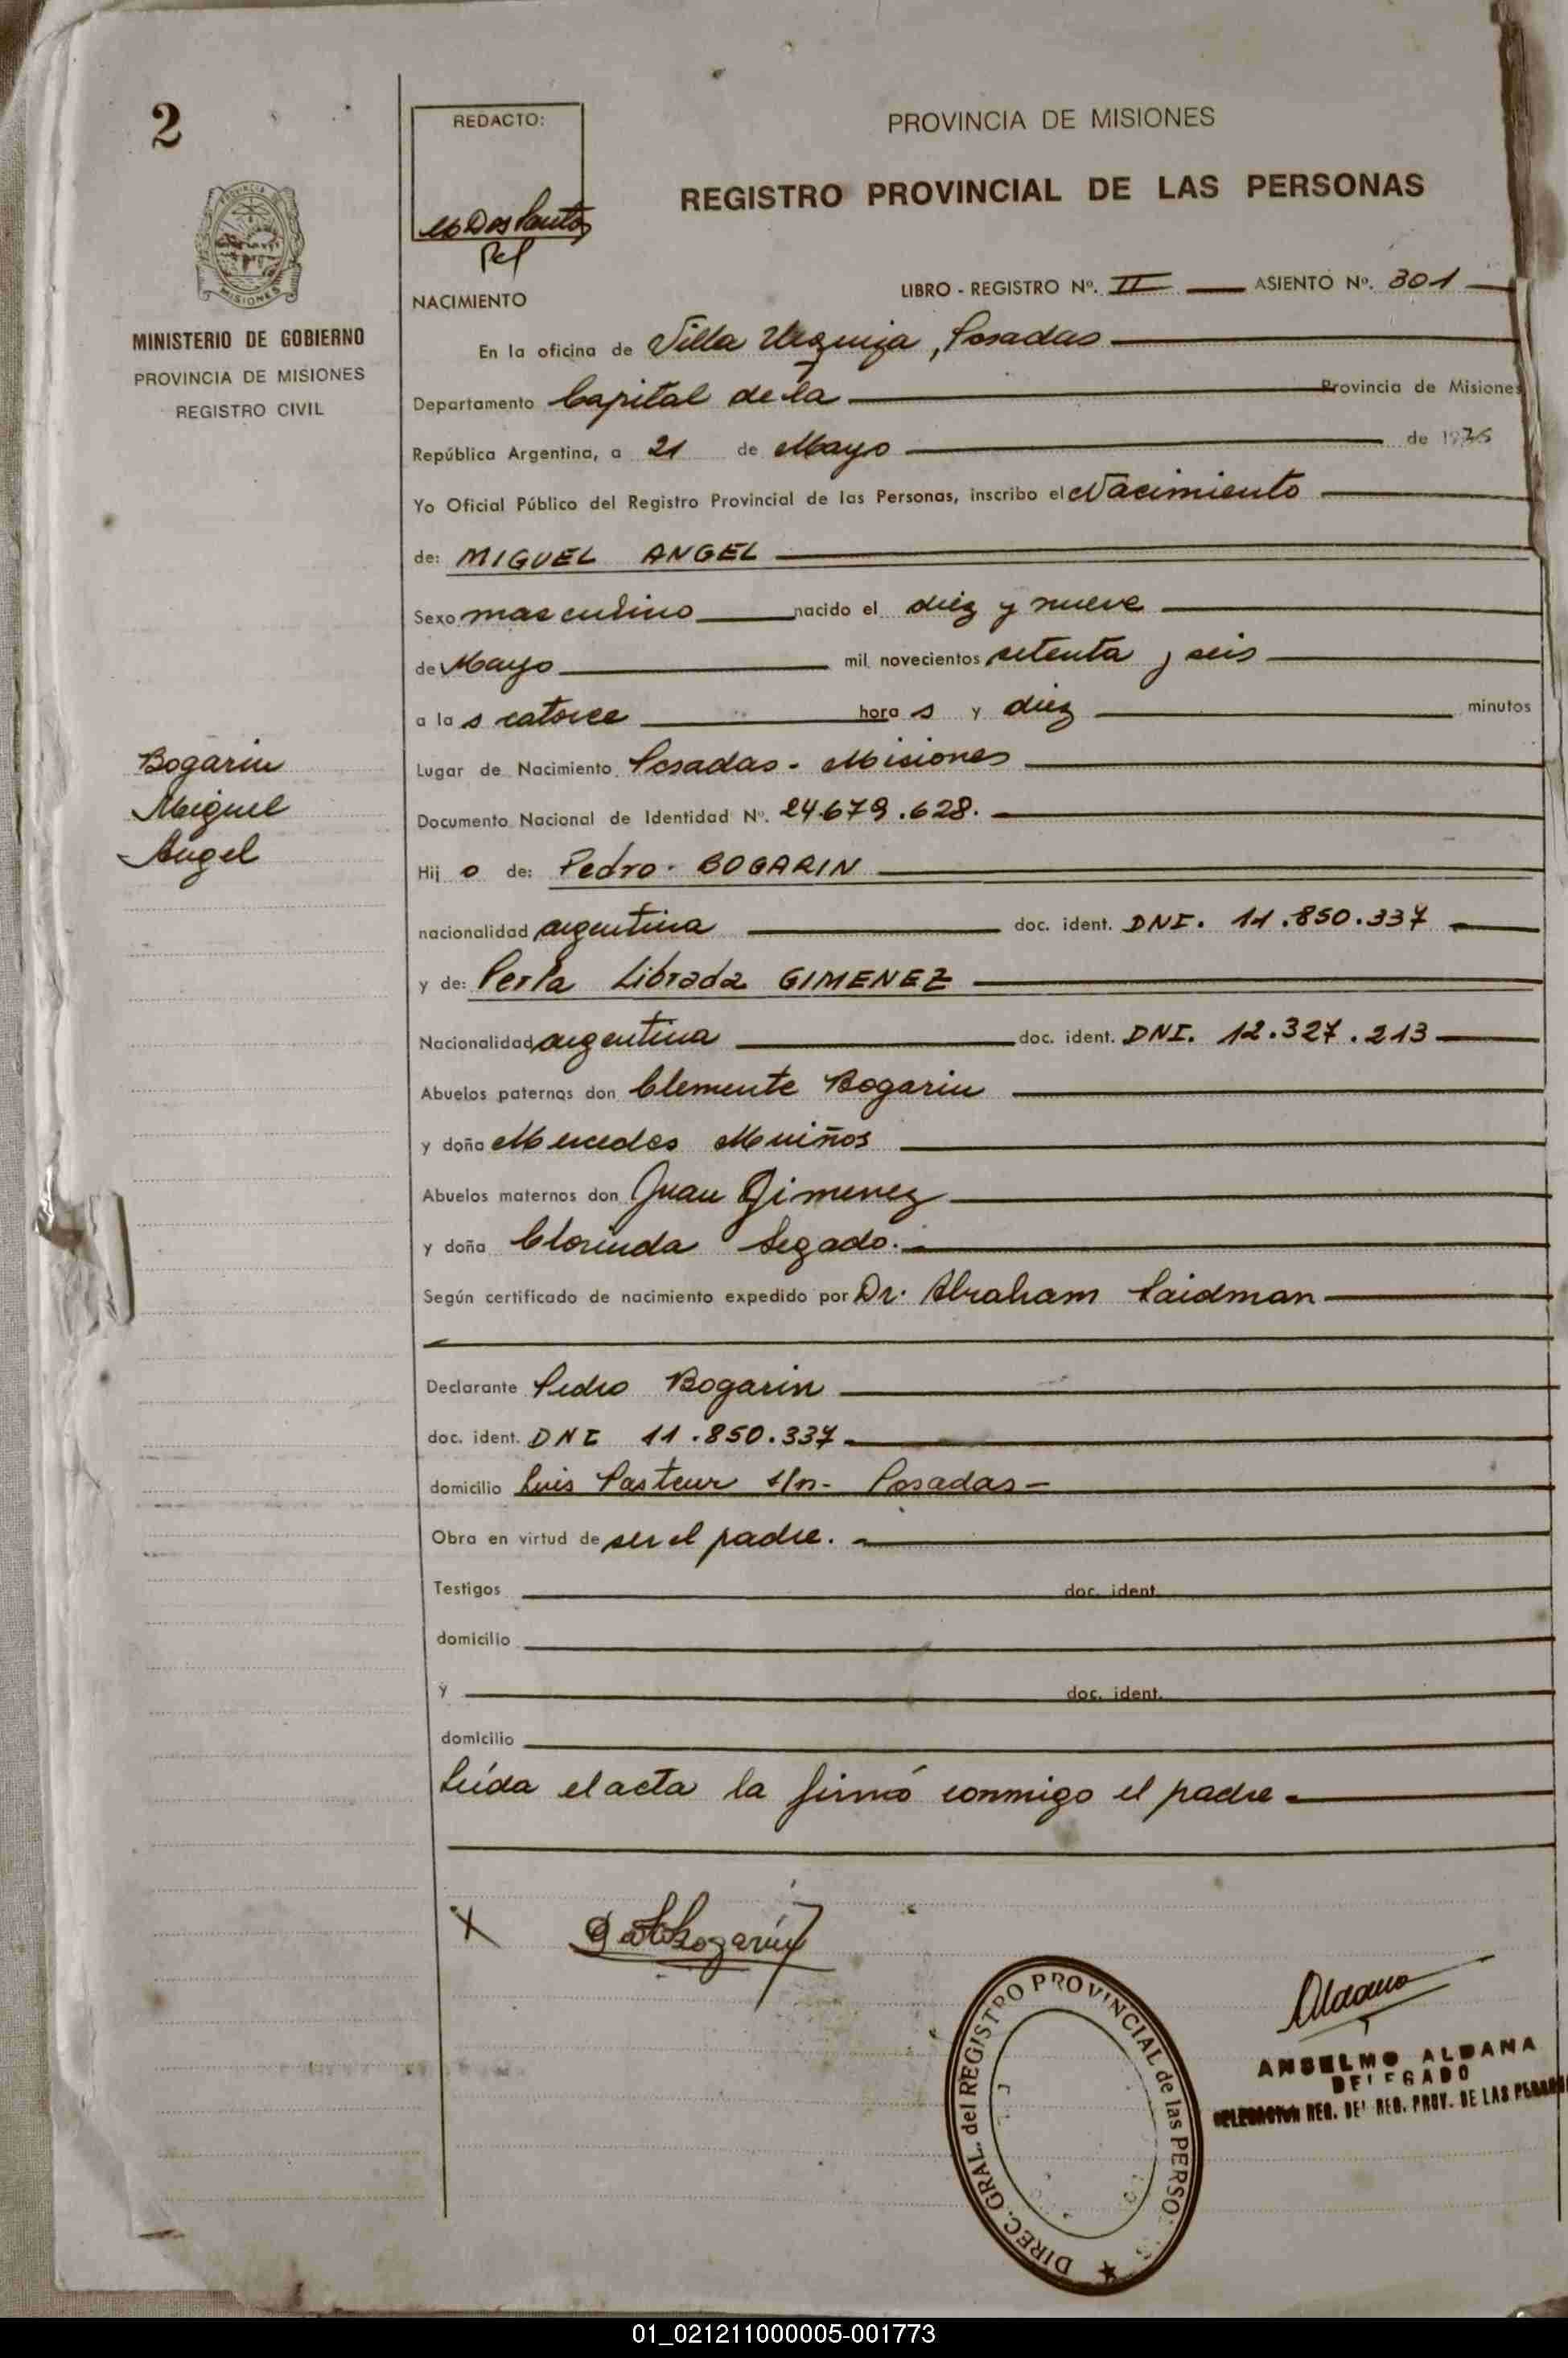 2
PROVINCIA
MISIONES
MINISTERIO DE GOBIERNO
PROVINCIA DE MISIONES
REGISTRO CIVIL
REDACTO:
PROVINCIA DE MISIONES
REGISTRO PROVINCIAL DE LAS PERSONAS
LIBRO - REGISTRO Nº. II ASIENTO Nº. 301
NACIMIENTO
En la oficina de Villa Urquiza, Posadas
Departamento Capital de la Provincia de Misiones
República Argentina, a 21 de Mayo de 1976
Yo Oficial Público del Registro Provincial de las Personas, inscribo el Nacimiento
de: MIGUEL ANGEL
Sexo masculino nacido el diez y nueve
de Mayo mil novecientos setenta y seis
a las catorce horas y diez minutos
Bogarin
Miguel
Angel
Lugar de Nacimiento Posadas - Misiones
Documento Nacional de Identidad Nº. 24.679.628.
Hijo de: Pedro BOGARIN
nacionalidad argentina doc. ident. DNI. 11.850.337
y de: Perla Librada GIMENEZ
Nacionalidad argentina doc. ident. DNI. 12.327.213
Abuelos paternos don Clemente Bogarin
y doña Mercedes Muiños
Abuelos maternos don Juan Gimenez
y doña Clorinda Segado.
Según certificado de nacimiento expedido por Dr. Abraham Saidman
Declarante Pedro Bogarin
doc. ident. DNI 11.850.337
domicilio Luis Pasteur s/n- Posadas-
Obra en virtud de ser el padre.
Testigos doc. ident.
domicilio
y doc. ident.
domicilio
Leída el acta la firmó conmigo el padre
X Bogarin
DIREC. GRAL. del REGISTRO PROVINCIAL de las PERSO
Aldana
ANSELMO ALDANA
DELEGADO
DELEGACION REG. DEL REG. PROV. DE LAS PERSONAS
01_021211000005-001773